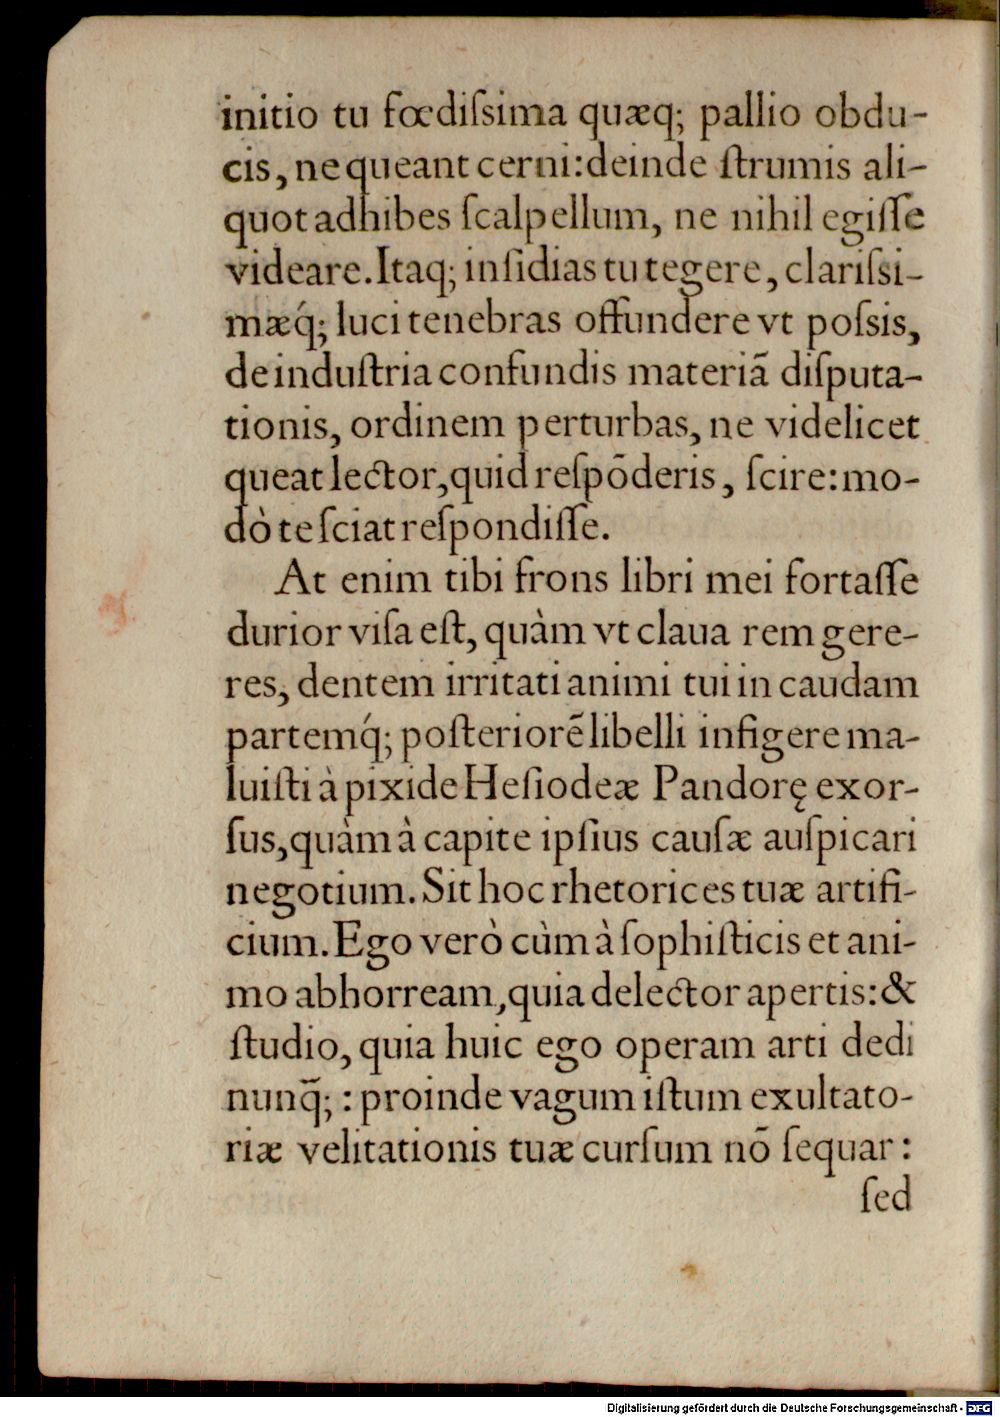 initio tu fœdiſsima quæq; pallio obdu-
cis, ne queant cerni: deinde ſtrumis ali-
quot adhibes ſcalpellum, ne nihil egiſſe
videare. Itaq; inſidias tu tegere, clariſsi-
mæq́; luci tenebras offundere vt poſsis,
de induſtria confundis materiã diſputa-
tionis, ordinem perturbas, ne videlicet
queat lector, quid reſpõderis, ſcire: mo-
dò te ſciat reſpondiſſe.
At enim tibi frons libri mei fortaſſe
durior viſa eſt, quàm vt claua rem gere-
res, dentem irritati animi tui in caudam
partemq́; poſteriorẽ libelli infigere ma-
luiſti à pixide Heſiodeæ Pandorę exor-
ſus, quàm à capite ipſius cauſæ auſpicari
negotium. Sit hoc rhetorices tuæ artifi-
cium. Ego verò cùm à ſophiſticis et ani-
mo abhorream, quia delector apertis: &
ſtudio, quia huic ego operam arti dedi
nunq̃; : proinde vagum iſtum exultato-
riæ velitationis tuæ curſum nõ ſequar:
ſed
Digitalisierung gefördert durch die Deutsche Forschungsgemeinschaft - DFG